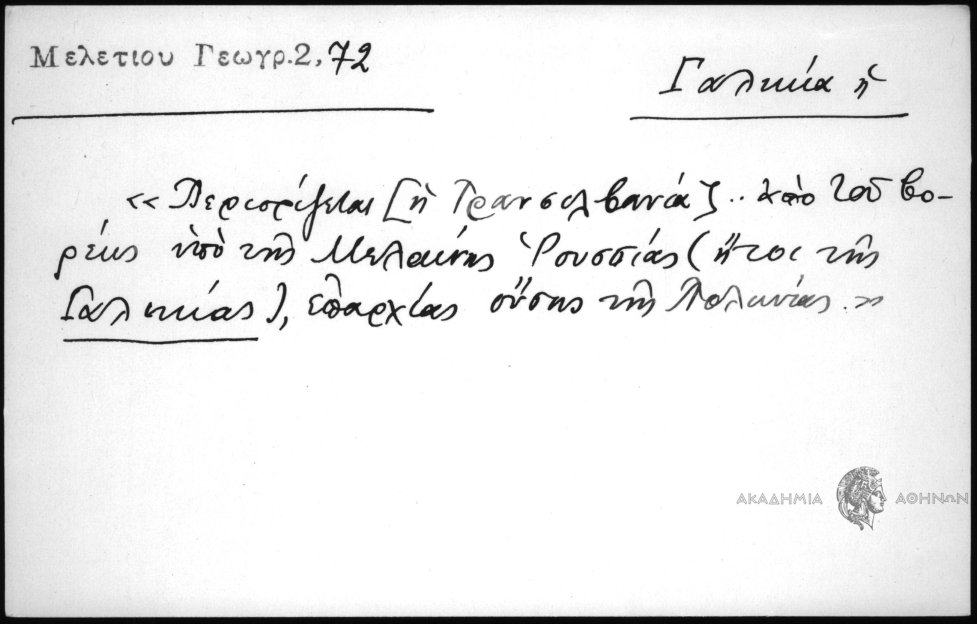 Μελετιου Γεωγρ.2, 72
Γαλικία ἡ
«Περιορίζεται [ἡ Τρανσιλβανία] .. ἀπὸ τοῦ βο-
ρέως ὑπὸ τῆς Μελαίνης Ῥουσσίας (ἤτοι τῆς
Γαλικίας), ἐπαρχίας οὔσης τῆς Πολωνίας.»
ΑΚΑΔΗΜΙΑ ΑΘΗΝΩΝ